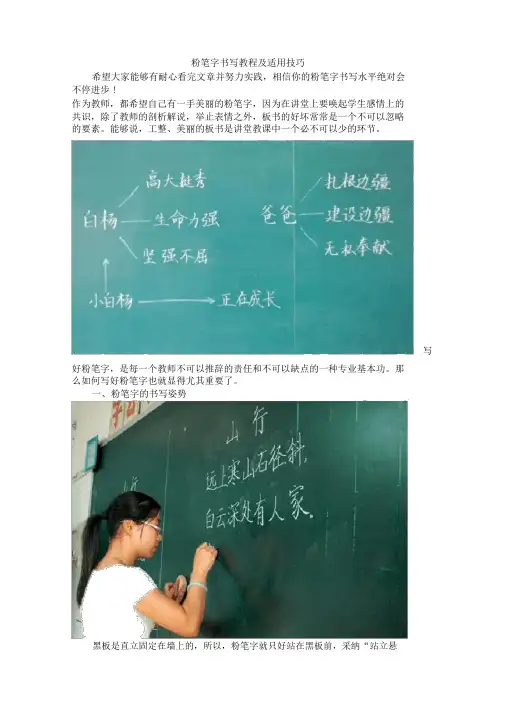 粉笔字书写教程及适用技巧
希望大家能够有耐心看完文章并努力实践，相信你的粉笔字书写水平绝对会
不停进步！
作为教师，都希望自己有一手美丽的粉笔字，因为在讲堂上要唤起学生感情上的
共识，除了教师的剖析解说，举止表情之外，板书的好坏常常是一个不可以忽略
的要素。能够说，工整、美丽的板书是讲堂教课中一个必不可以少的环节。
高大挺秀
白杨
生命力强
坚强不屈
小白杨
正在成长
爸爸
扎根边疆
建设边疆
无私奉献
写
好粉笔字，是每一个教师不可以推辞的责任和不可以缺点的一种专业基本功。那
么如何写好粉笔字也就显得尤其重要了。
一、粉笔字的书写姿势
山行
远上寒山石径斜，
白云深处有人家。
黑板是直立固定在墙上的，所以，粉笔字就只好站在黑板前，采纳“站立悬